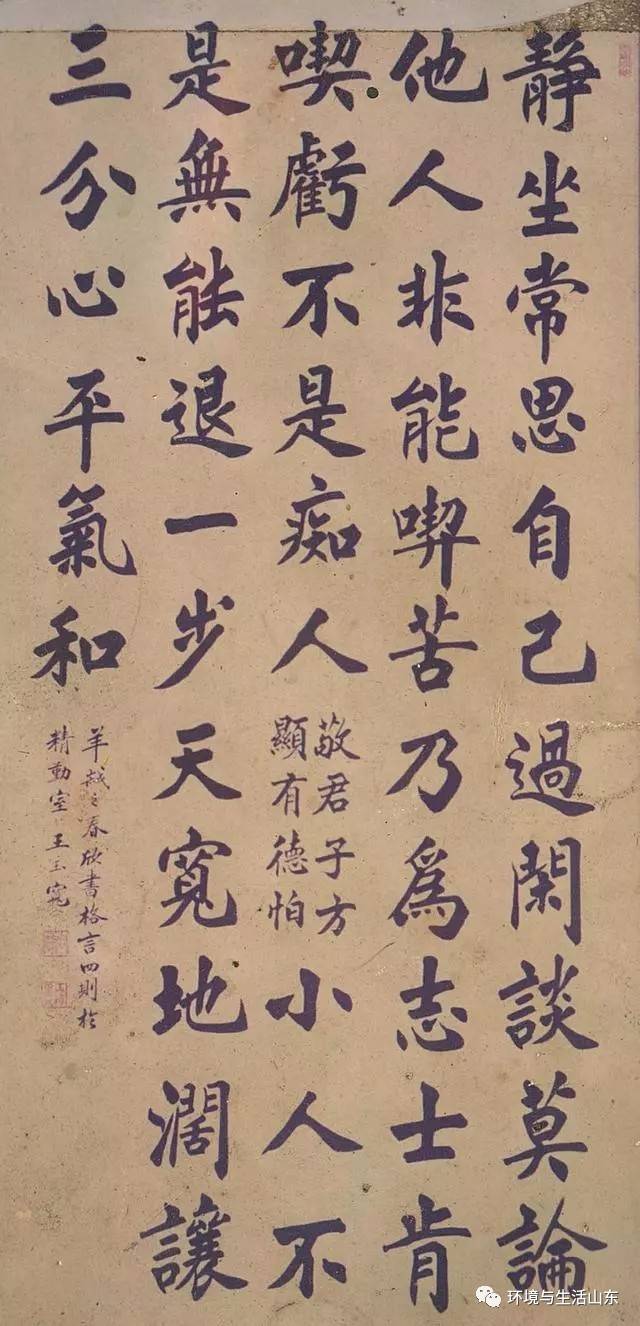 静坐常思自己過閑談莫論
他人非能喫苦乃為志士肯
喫虧不是痴人
敬君子方
顯有德怕
小人不
是無能退一步天寬地濶讓
三分心平氣和
之春欣書格言四則於
精勤室王玉寬
环境与生活山东